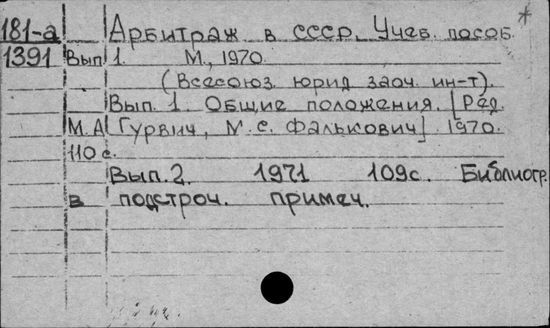 181-а Арбитраж в СССР. Учеб. пособ. *
1391 Вып 1. М., 1970.
(Всесоюз. юрид. заоч. ин-т).
Вып. 1. Общие положения. [Ред.
М.А Гурвич, М.С. Фалькович]. 1970.
110 с.
Вып. 2. 1971 109с. Библиогр.
в подстроч. примеч.